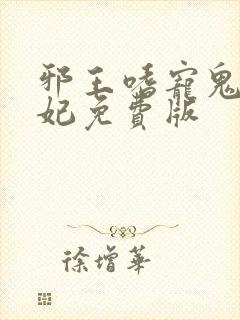 邪王嗜寵鬼
妃免費版
徐增華